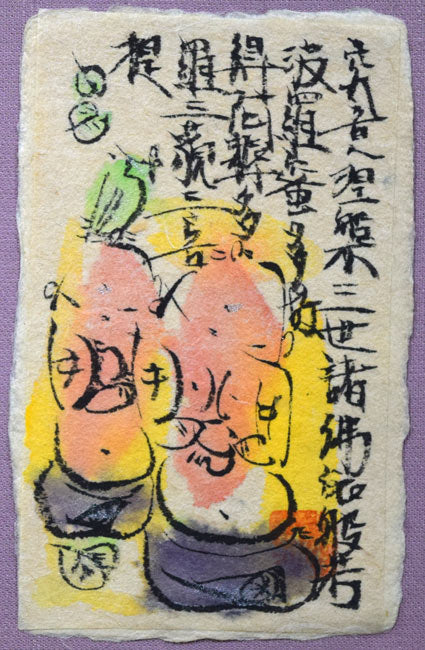 究竟涅槃三世諸佛依般若
波羅蜜多故
得阿耨多
羅三藐三菩
提